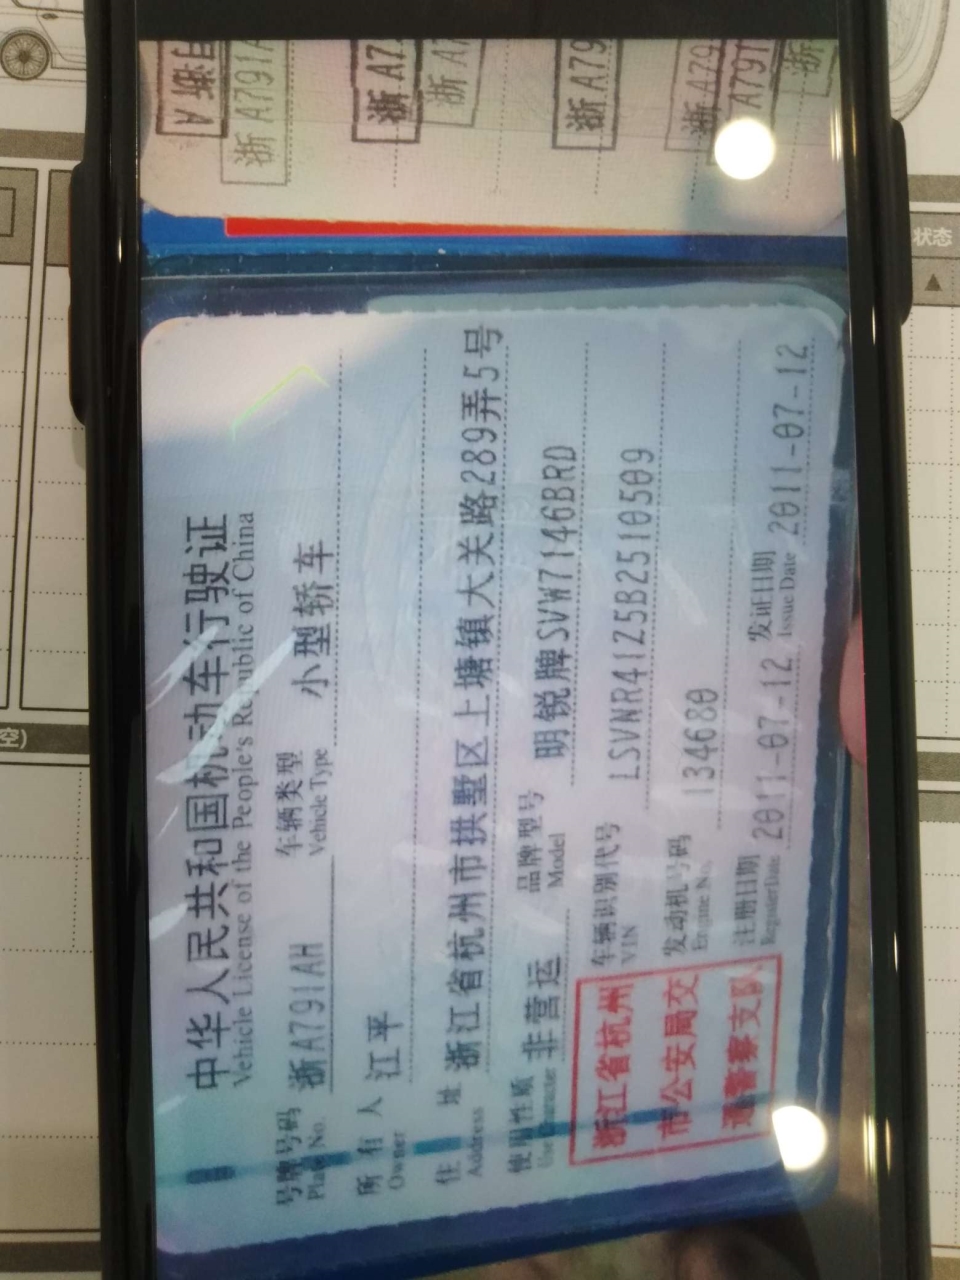 中华人民共和国机动车行驶证
Vehicle License of the People's Republic of China
号牌号码 浙A791AH 车辆类型 小型轿车
Plate No. Vehicle Type
所有人 江平
Owner
住址 浙江省杭州市拱墅区上塘镇大关路289弄5号
Address
使用性质 非营运 品牌型号 明锐牌SVW7146BRD
Use Character Model
车辆识别代号 LSVNR4125B2510509
VIN
发动机号码 134680
Engine No.
注册日期 2011-07-12 发证日期 2011-07-12
Register Date Issue Date
浙江省杭州
市公安局交
通警察支队
浙A791A
浙A7
浙A7
浙A79
浙A79
A791
浙
状态
空)